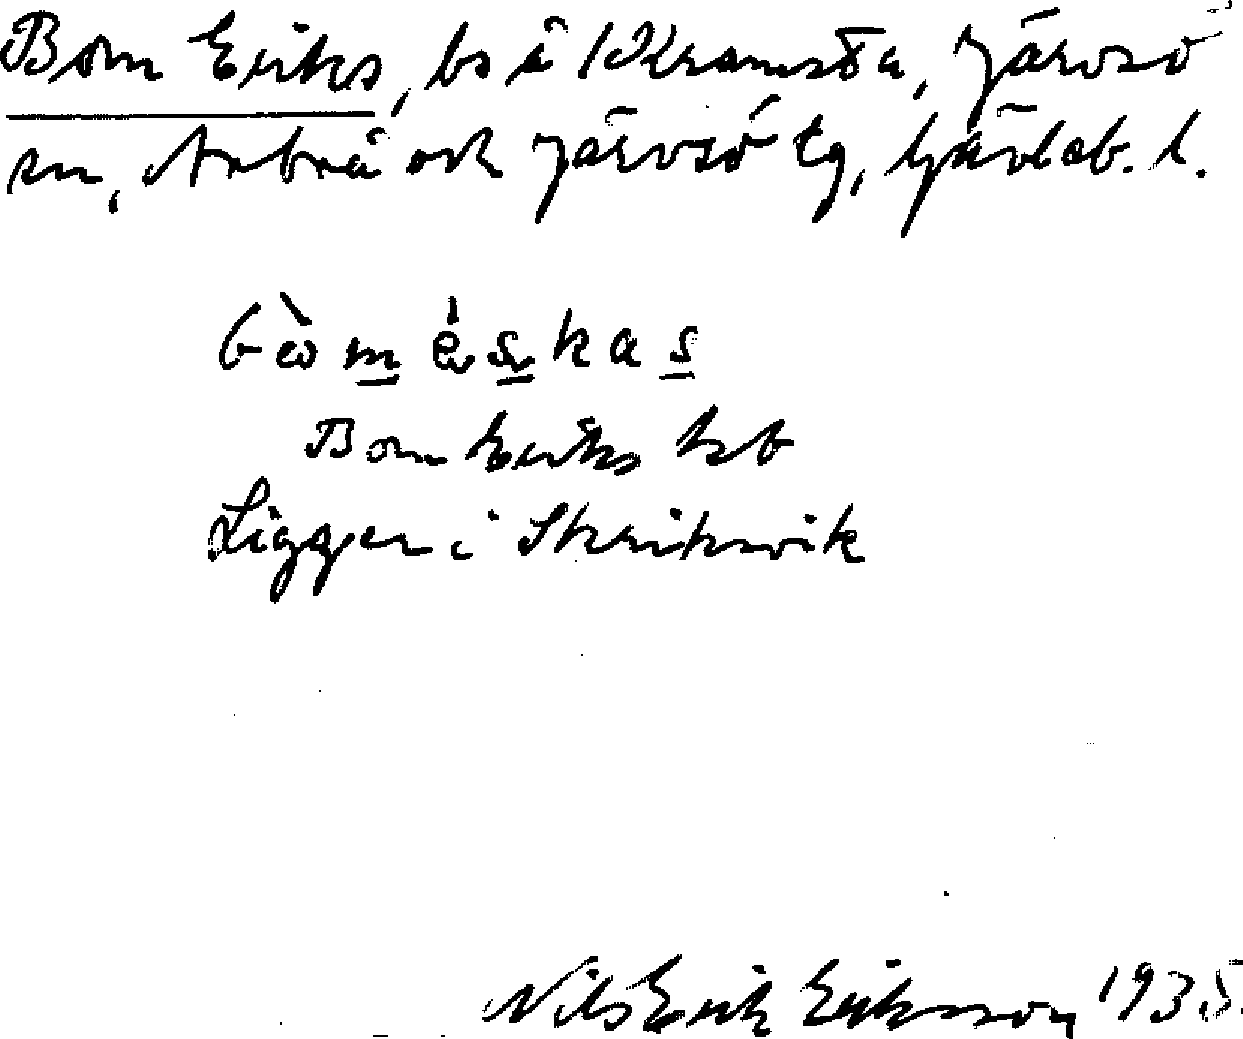 Bom Eriks, bs i Kramsta, Järvsö
sn, Arbrå och Järvsö tg, Gävleb. l.
Bom Eriks
Ligger i Skriksvik
Nils Erik Eriksson 1935.